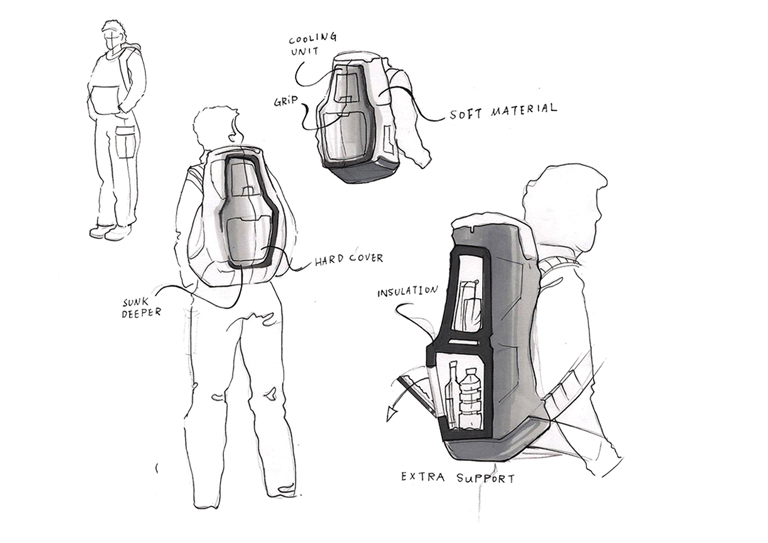 COOLING
UNIT
GRIP
SOFT MATERIAL
HARD COVER
SUNK
DEEPER
INSULATION
EXTRA SUPPORT